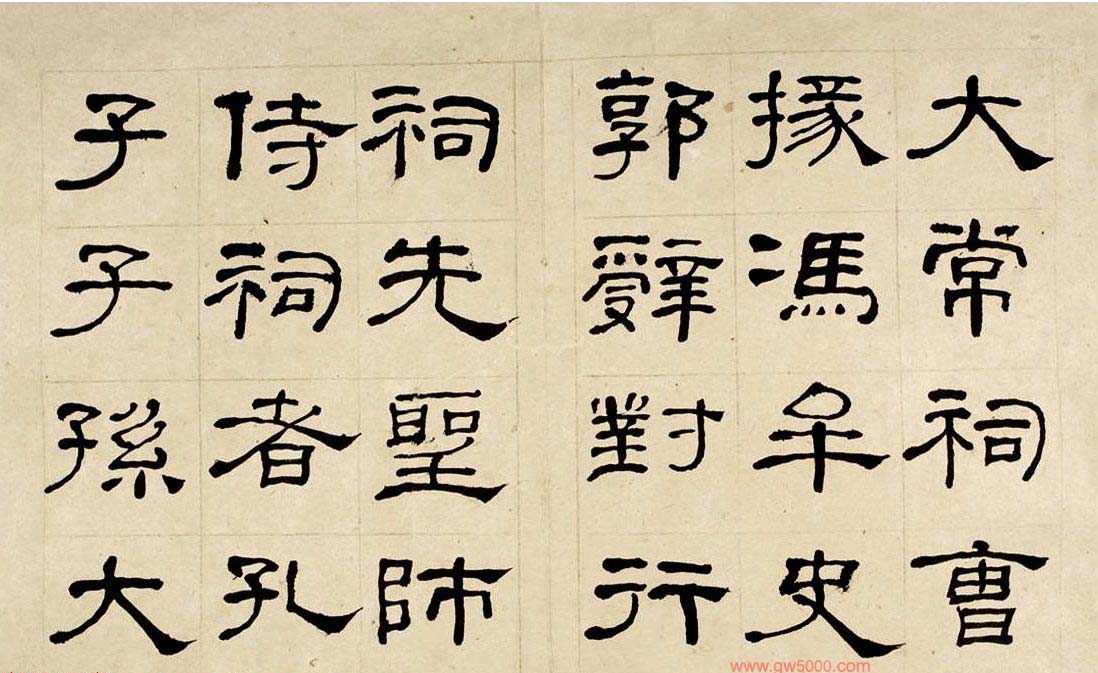 大常祠曹
掾馮牟史
郭辤對行
祠先聖師
侍祠者孔
子子孫大
www.gw5000.com